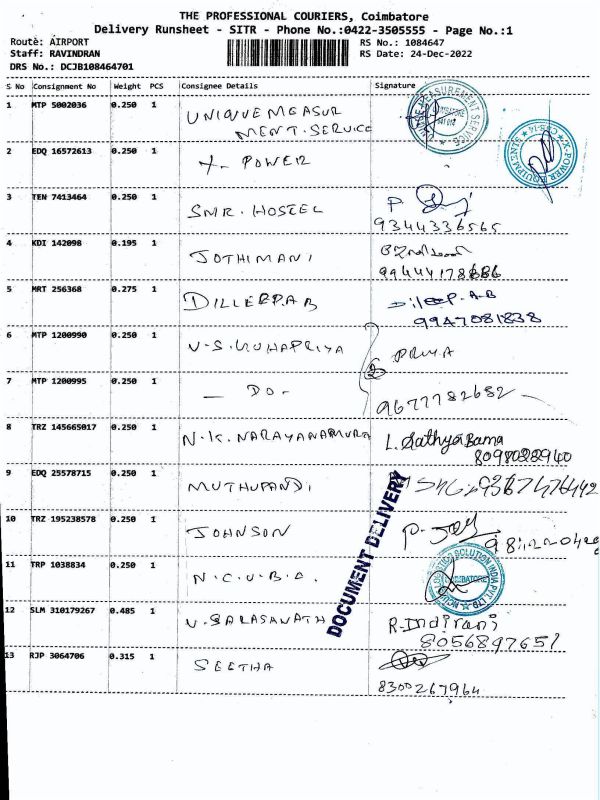 THE PROFESSIONAL COURIERS, Coimbatore
Delivery Runsheet - SITR - Phone No.:0422-3505555 - Page No.:1
Route: AIRPORT
RS No.: 1084647
Staff: RAVINDRAN
RS Date: 24-Dec-2022
DRS No.: DCJB108464701
S No Consignment No Weight PCS Consignee Details Signature
1 MTP 5002036 0.250 1 UNIQUE MEASUR
MENT. SERVICE
2 EDQ 16572613 0.250 1 X- POWER
3 TEN 7413464 0.250 1 SMR. HOSTEL
9344336565
4 KDI 142098 0.195 1 JOTHIMANI
5 MRT 256368 0.275 1 DILLEEP.A.B Dileep. A.B
9947081838
6 MTP 1200990 0.250 1 V.S. PRIYA
7 MTP 1200995 0.250 1 - DO - 9677782682
8 TRZ 145665017 0.250 1 N.K. L. Sathya Bama
9 EDQ 25578715 0.250 1 MUTHUPANDI
10 TRZ 195238578 0.250 1 JOHNSON
11 TRP 1038834 0.250 1 N.C.U.B.C.
12 SLM 310179267 0.485 1 R. Indirani
8056897651
13 RJP 3064706 0.315 1 SEETHA
8300267964
DOCUMENT DELIVERY